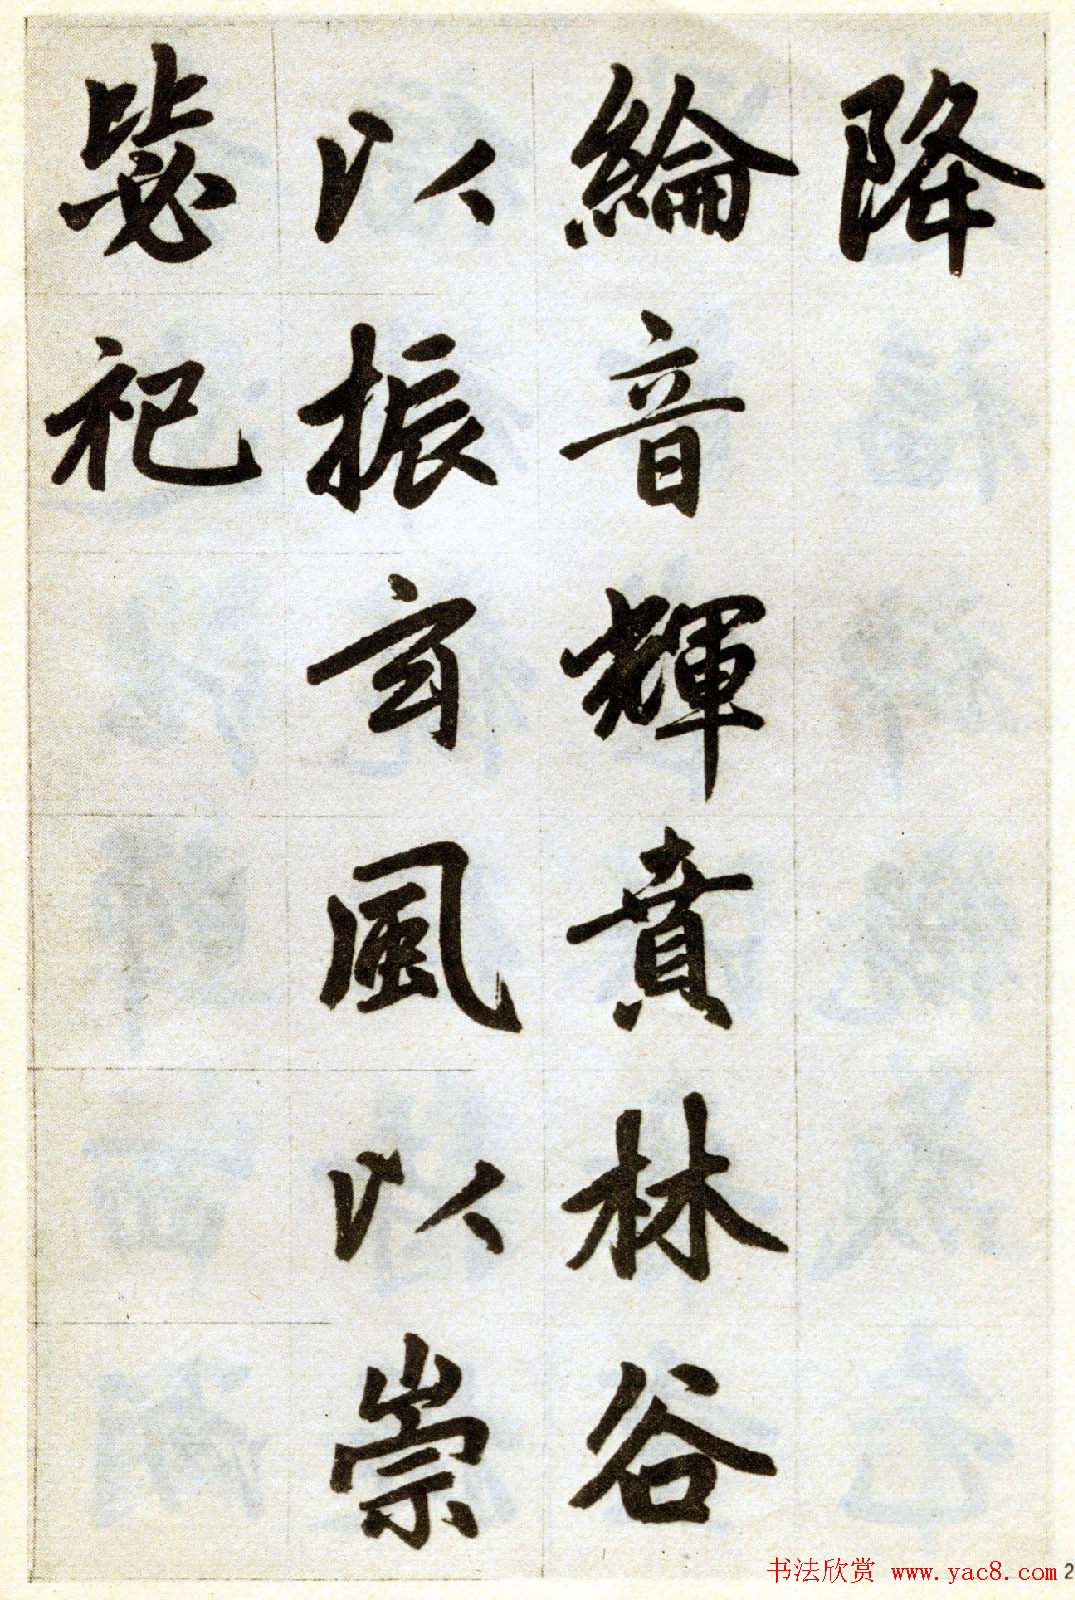 降
綸音輝賁林谷
以振玄風以崇
毖祀
书法欣赏 www.yac8.com
2